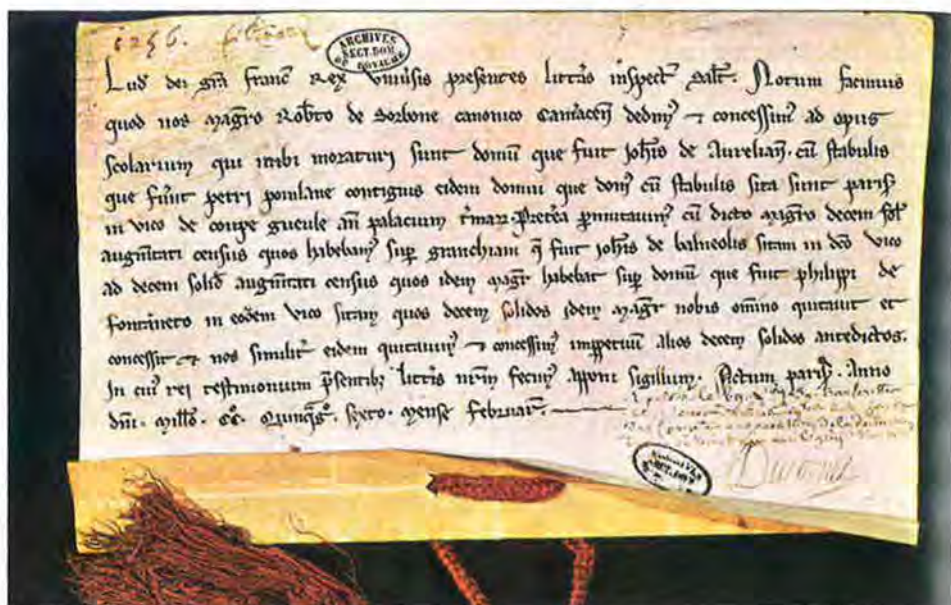 1256.
ARCHIVES
SECT. DOM
DU ROYAUME
Lud dei grã franc Rex vniũsis presentes littãs inspect salt. Notum facimus
quod nos magr̃o Rob̃to de Sorbone canonico Camacen̄ dedim⁹ ⁊ concessim⁹ ad opus
scolarium qui inibi moraturi sunt domũ que fuit joh̃is de Aurelian̄. cũ stabulis
que fũnt petri poinlane contiguis eidem domui que dom⁹ cũ stabulis sita sunt paris̃
in vico de coupe gueule añ palacium t̃mar. Pret̃ea p̃mutauim⁹ cũ dicto magr̃o decem sol̃
augm̃tati census quos habebam⁹ sup̃ granchiam q̃ fuit joh̃is de balneolis sitam in dc̃o vico
ad decem solid̃ augm̃tati census quos idem mag̃r habebat sup̃ domũ que fuit philippi de
fontaneto in eod̃em vico sitam quos decem solidos idem mag̃r nobis om̃ino quitauit et
concessit ⁊ nos similit̃ eidem quitauim⁹ ⁊ concessim⁹ imppetuũ alios decem solidos antedictos.
In cui⁹ rei testimonium p̃sentib⁹ litt̃is nr̃m fecim⁹ apponi sigillum. Actum paris̃. Anno
dñi. mill̃o. cc̃. Quinq̃g̃. sexto. mense februar̃.